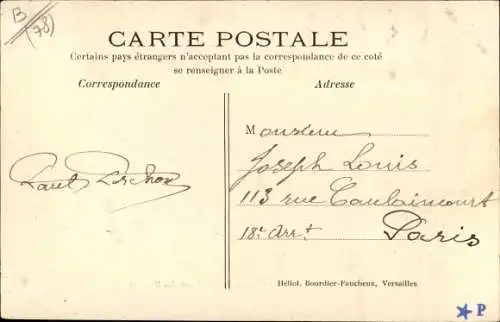 B
(78)
CARTE POSTALE
Certains pays étrangers n'acceptant pas la correspondance de ce coté
se renseigner à la Poste
Correspondance
Adresse
Paul
Monsieur
Joseph Louis
113 rue Caulaincourt
18e Arrt
Paris
Héliot. Bourdier-Faucheux, Versailles
P